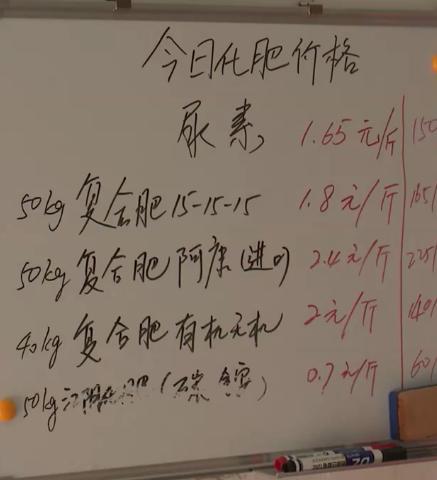 今日化肥价格
尿素 1.65元/斤 150
50kg 复合肥15-15-15 1.8元/斤 165/
50kg 复合肥 阿康(进口) 2.4元/斤 225/
40kg 复合肥 有机无机 2元/斤 140/
50kg 肥 ( 碳 ) 0.7元/斤 60/